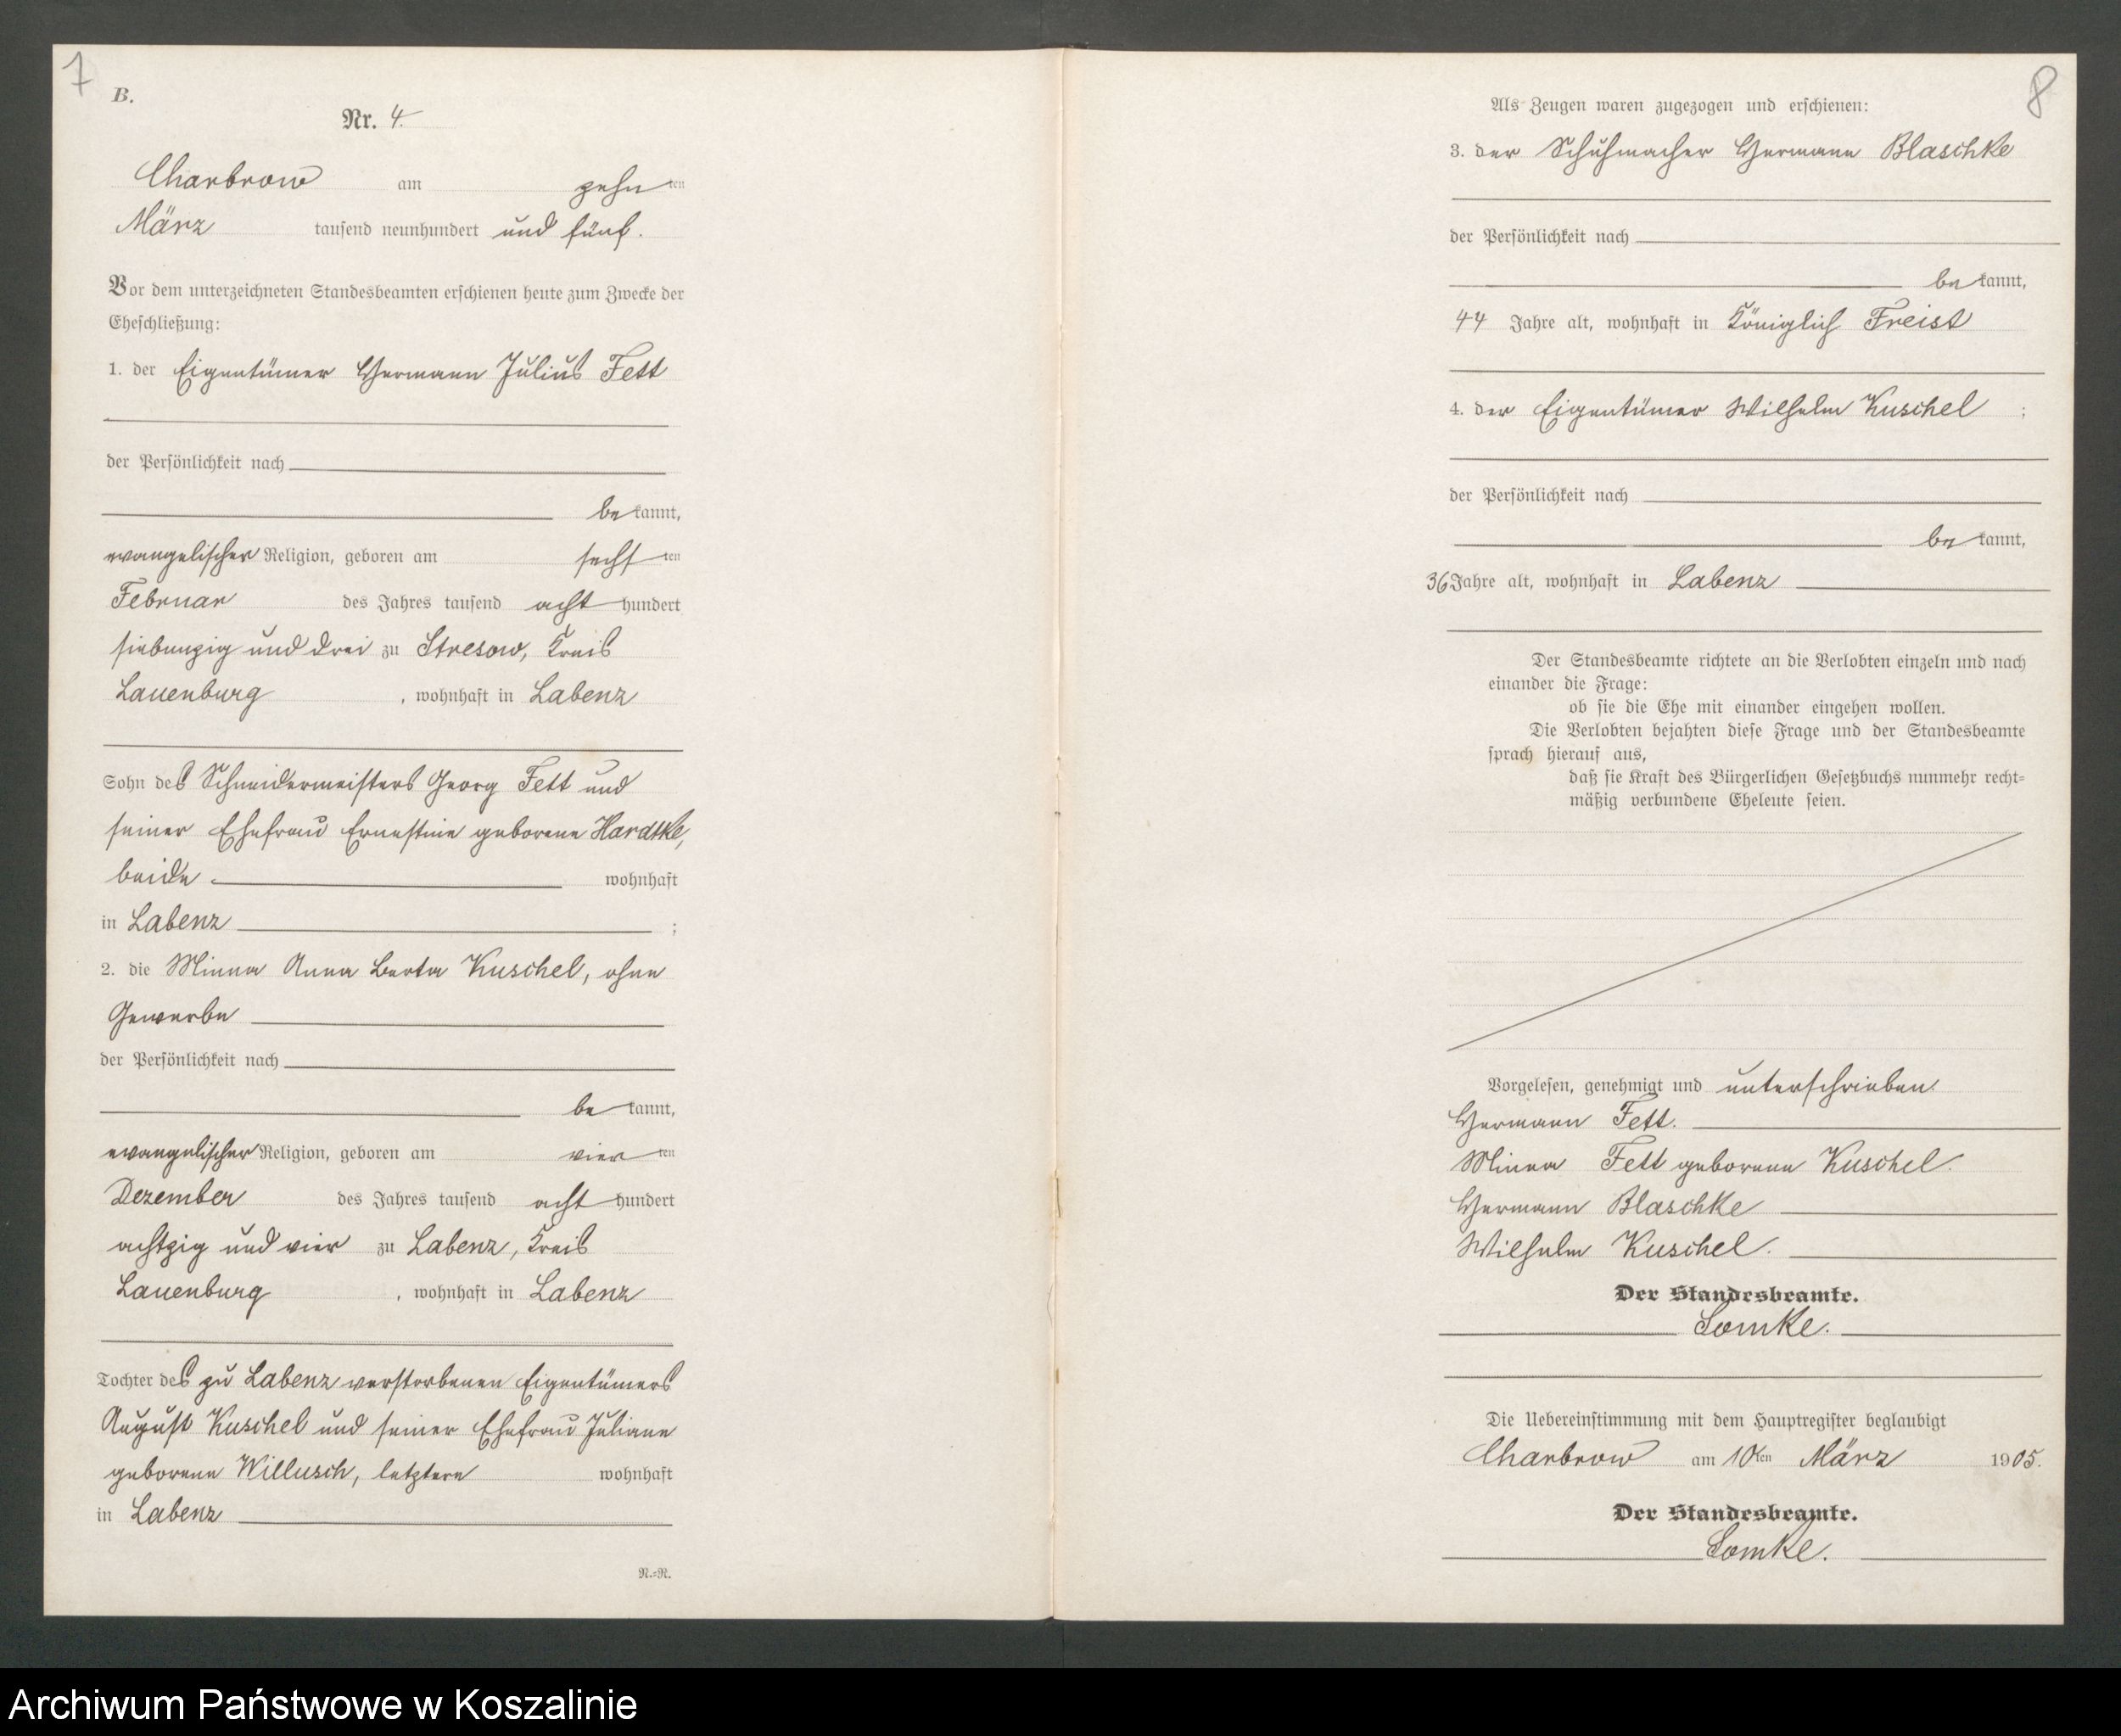 7
B.
Nr. 4.
Charbrow am zehn ten
März tausend neunhundert und fünf.
Vor dem unterzeichneten Standesbeamten erschienen heute zum Zwecke der
Eheschließung:
1. der Eigentümer Hermann Julius Fett
der Persönlichkeit nach
be kannt,
evangelischer Religion, geboren am sechs ten
Februar des Jahres tausend acht hundert
siebenzig und drei zu Stresow, Kreis
Lauenburg, wohnhaft in Labenz
Sohn des Schneidermeisters Georg Fett und
seiner Ehefrau Ernestine geborene Hardtke,
beide wohnhaft
in Labenz ;
2. die Minna Anna Berta Kuschel, ohne
Gewerbe
der Persönlichkeit nach
be kannt,
evangelischer Religion, geboren am vier ten
Dezember des Jahres tausend acht hundert
achtzig und vier zu Labenz, Kreis
Lauenburg, wohnhaft in Labenz
Tochter des zu Labenz verstorbenen Eigentümers
August Kuschel und seiner Ehefrau Juliane
geborene Willusch, letztere wohnhaft
in Labenz
N.=R.
8
Als Zeugen waren zugezogen und erschienen:
3. der Schuhmacher Hermann Blaschke
der Persönlichkeit nach
be kannt,
44 Jahre alt, wohnhaft in Königlich Freist
4. der Eigentümer Wilhelm Kuschel ;
der Persönlichkeit nach
be kannt,
36 Jahre alt, wohnhaft in Labenz
Der Standesbeamte richtete an die Verlobten einzeln und nach
einander die Frage:
ob sie die Ehe mit einander eingehen wollen.
Die Verlobten bejahten diese Frage und der Standesbeamte
sprach hierauf aus,
daß sie Kraft des Bürgerlichen Gesetzbuchs nunmehr recht=
mäßig verbundene Eheleute seien.
Vorgelesen, genehmigt und unterschrieben.
Hermann Fett.
Minna Fett geborene Kuschel.
Hermann Blaschke
Wilhelm Kuschel.
Der Standesbeamte.
Lomke.
Die Uebereinstimmung mit dem Hauptregister beglaubigt
Charbrow am 10ten März 1905.
Der Standesbeamte.
Lomke.
Archiwum Państwowe w Koszalinie